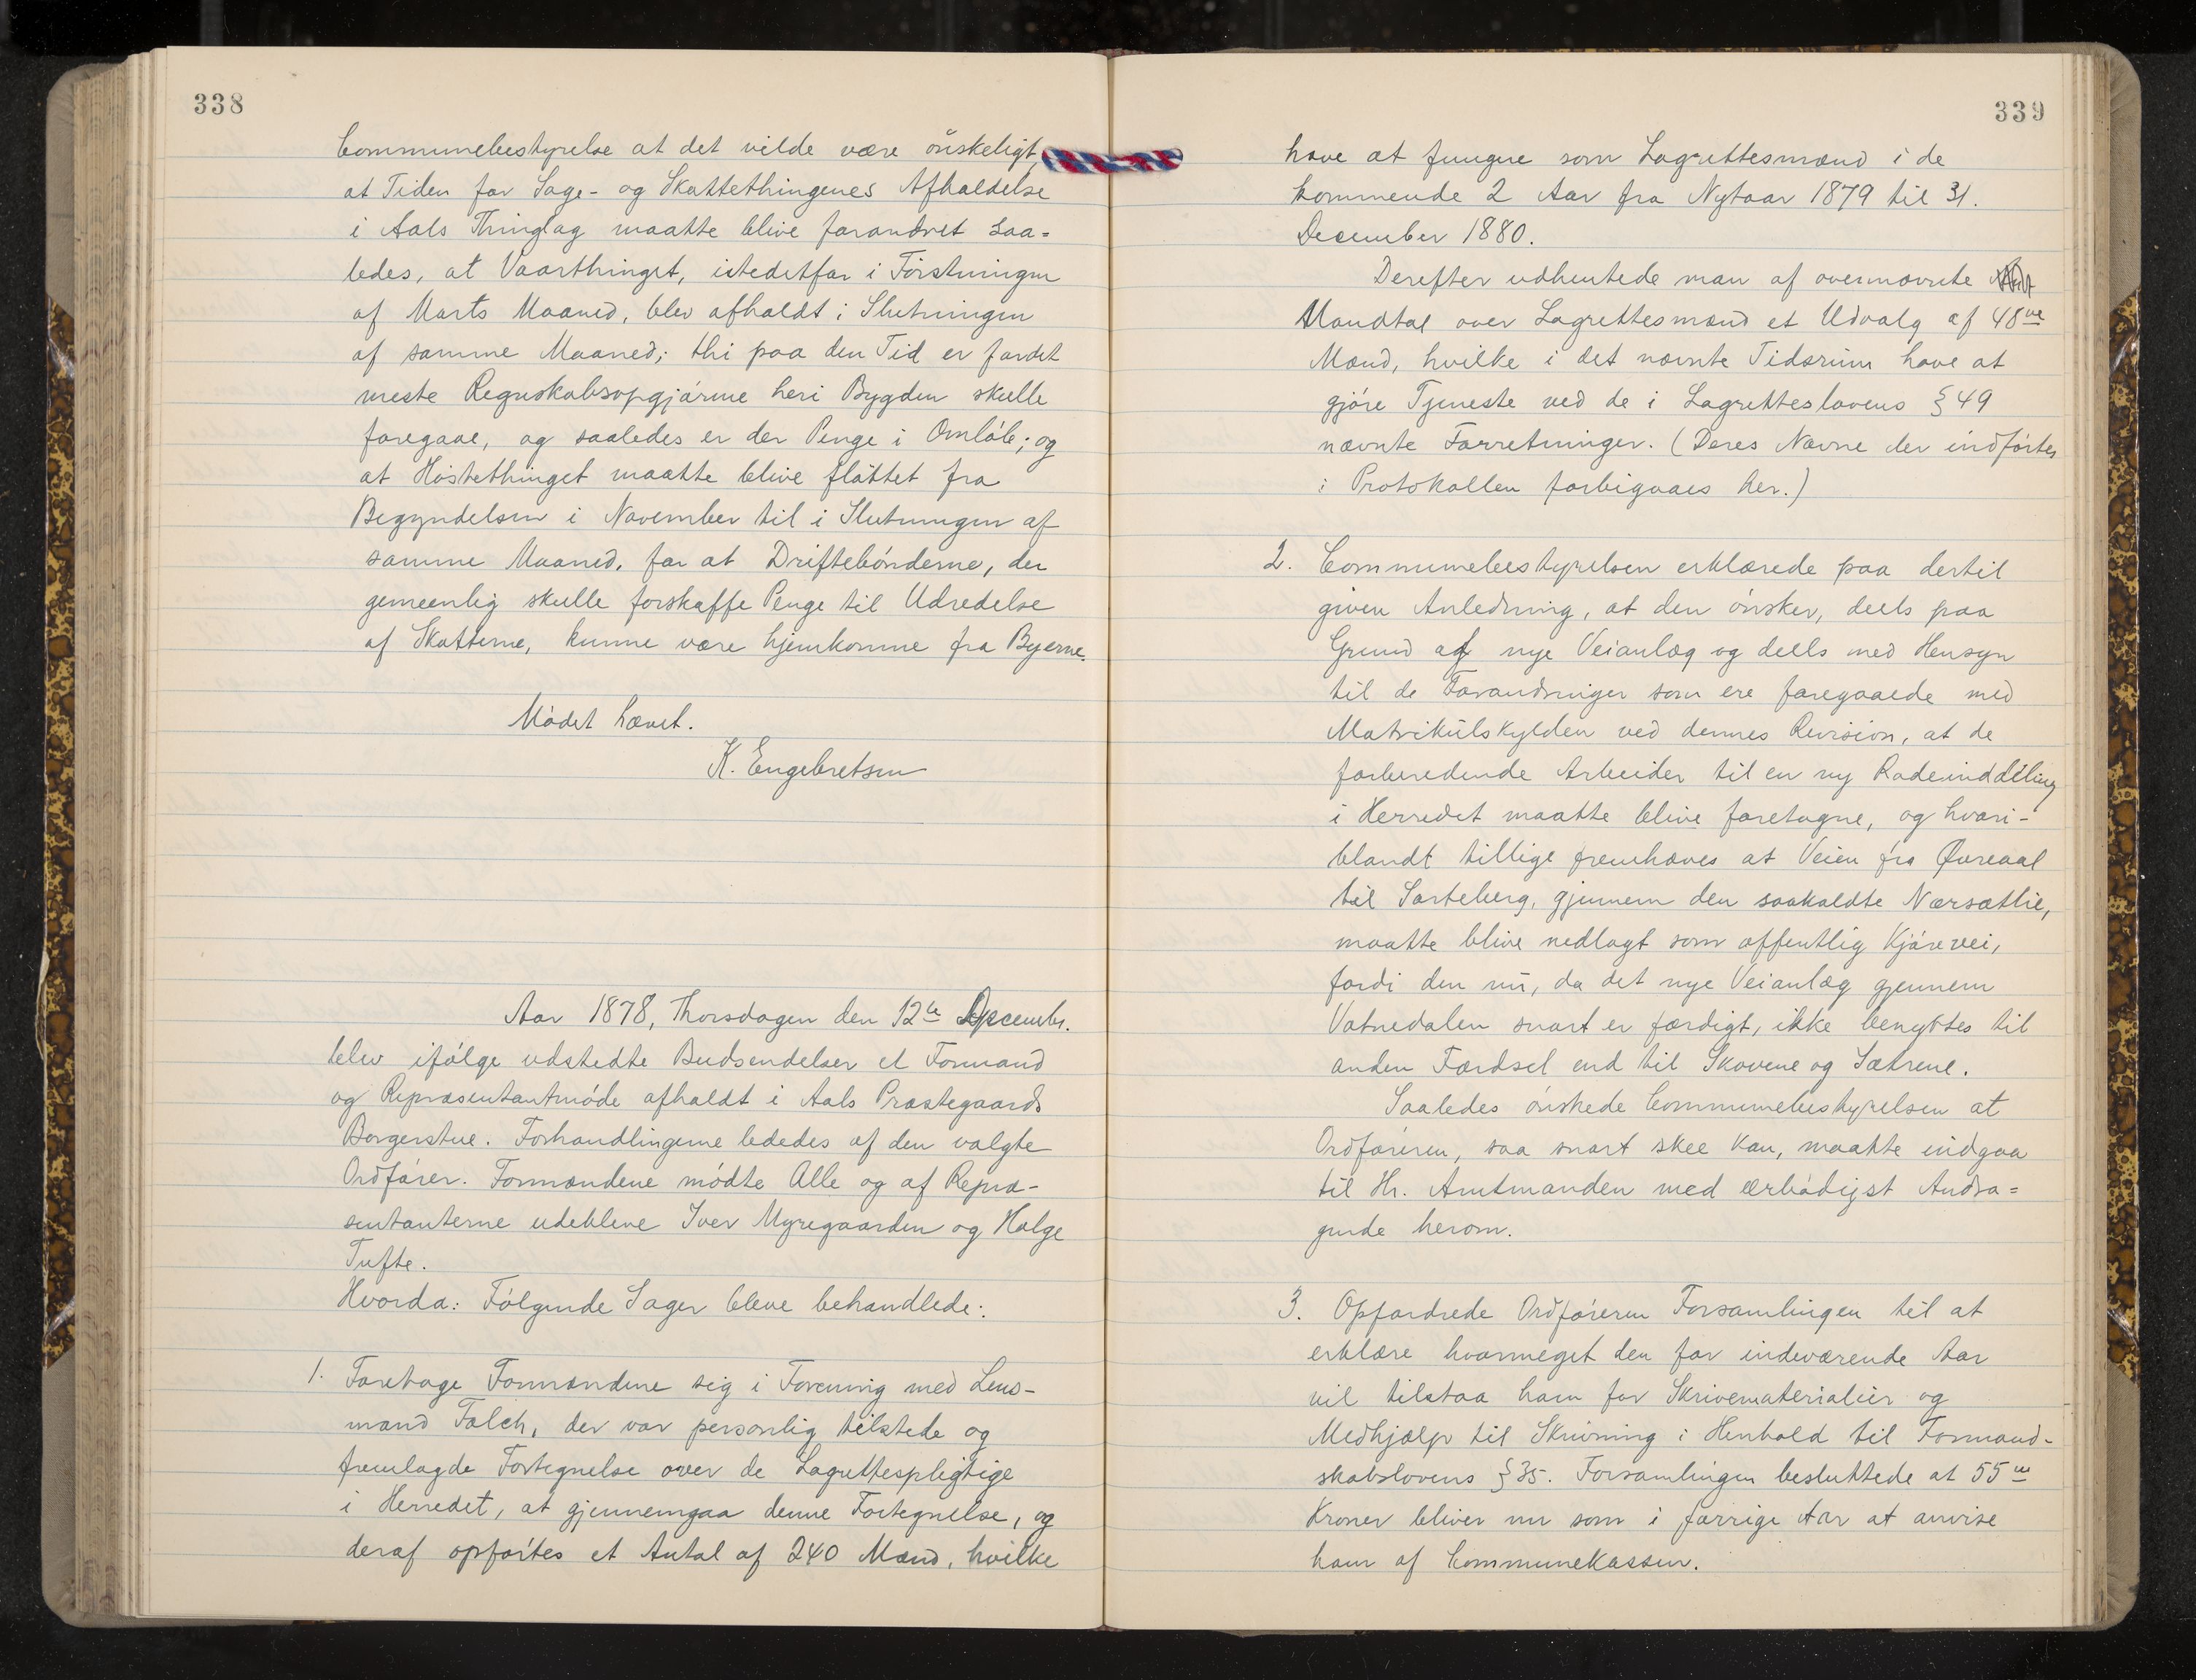 338
Communebestyrelse at det vilde være önskeligt,
at Tiden for Sage- og Skattethingenes Afholdelse
i Aals Thinglag maatte blive forandret saa=
ledes, at Vaarthinget, istedetfor i Förstningen
af Marts Maaned, blev afholdt i Slutningen
af samme Maaned; thi paa den Tid er fordet
meste Regnskabsopgjörene heri Bygden skulle
foregaae, og saaledes er der Penge i Omlöb; og
at Höstethinget maatte blive flöttet fra
Begyndelsen i November til i Slutningen af
samme Maaned, for at Driftebönderne, der
gemeenlig skulle forskaffe Penge til Udredelse
af Skatterne, kunne være hjemkomne fra Byerne.
Mödet hævet.
K. Engebretsen
Aar 1878, Thorsdagen den 12te Decembr.
blev ifölge udstedte Budsendelser et Formand
og Repræsentantmöde afholdt i Aals Præstegaards
Borgerstue. Forhandlingerne lededes af den valgte
Ordförer. Formændene mödte Alle og af Repræ-
sentanterne udebleve Iver Myregaarden og Holge
Tufte.
Hvorda: Fölgende Sager bleve behandlede:
1. Foretoge Formændene sig i Forening med Lens-
mand Falch, der var personlig tilstede og
fremlagde Fortegnelse over de Lagrettespligtige
i Herredet, at gjennemgaa denne Fortegnelse, og
deraf opförtes et Antal af 240 Mænd, hvilke
339
have at fungere som Lagrettesmænd i de
kommende 2 Aar fra Nytaar 1879 til 31.
December 1880.
Derefter udhentede man af ovennævnte
Mandtal over Lagrettesmænd et Udvalg af 48ve
Mænd, hvilke i det nævnte Tidsrum have at
gjöre Tjeneste ved de i Lagretteslovens § 49
nævnte Forretninger. (Deres Navne der indförtes
i Protokollen forbigaaes her.)
2. Communebestyrelsen erklærede paa dertil
given Anledning, at den önsker, deels paa
Grund af nye Veianlæg og deels med Hensyn
til de Forandringer som ere foregaaede med
Matrikülskylden ved dennes Revision, at de
forberedende Arbeider til en ny Rodeinddeling
i Herredet maatte blive foretagne, og hvori-
blandt tillige fremhæves at Veien fra Øvreaal
til Sorteberg, gjennem den saakaldte Nærsætlie,
maatte blive nedlagt som offentlig Kjörevei,
fordi den nü, da det nye Veianlæg gjennem
Vatnedalen snart er færdigt, ikke benyttes til
anden Færdsel end til Skovene og Sætrene.
Saaledes önskede Communebestyrelsen at
Ordföreren, saa snart skee kan, maatte indgaa
til Hr. Amtmanden med ærbödigst Andra=
gende herom.
3. Opfordrede Ordföreren Forsamlingen til at
erklære hvormeget den for indeværende Aar
vil tilstaa ham for Skrivematerialier og
Medhjælp til Skrivning i Henhold til Formand-
skabslovens § 35. Forsamlingen besluttede at 55
Kroner bliver nu som i forrige Aar at anvise
ham af Communekassen.